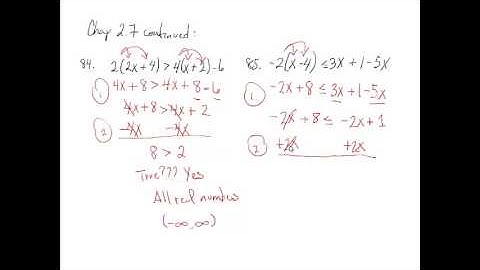 Chap 2.7 continued:
84. 2(2x+4) > 4(x+2)-6
① 4x+8 > 4x+8-6
4x+8 > 4x+2
② -4x -4x
8 > 2
True??? Yes
All real numbers
(-∞,∞)
85. -2(x-4) ≤ 3x+1-5x
① -2x+8 ≤ 3x+1-5x
-2x+8 ≤ -2x+1
② +2x +2x